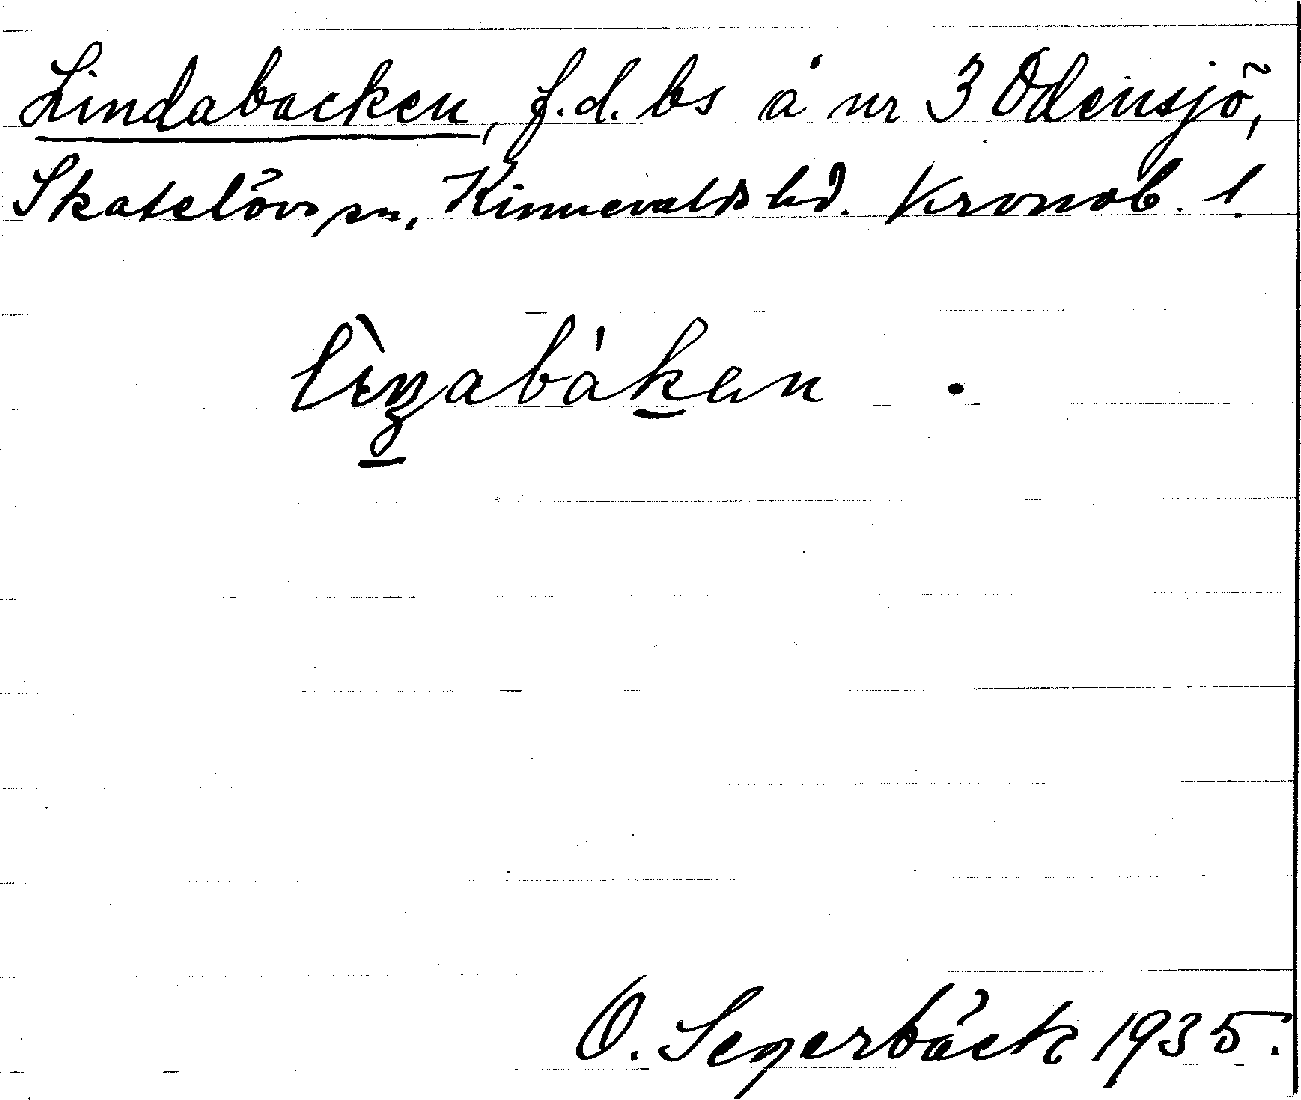 Lindabacken, f.d. bs å nr 3 Odensjö,
Skatelövs sn, Kinnevalds hd. Kronob. l.
O. Segerbäck 1935.